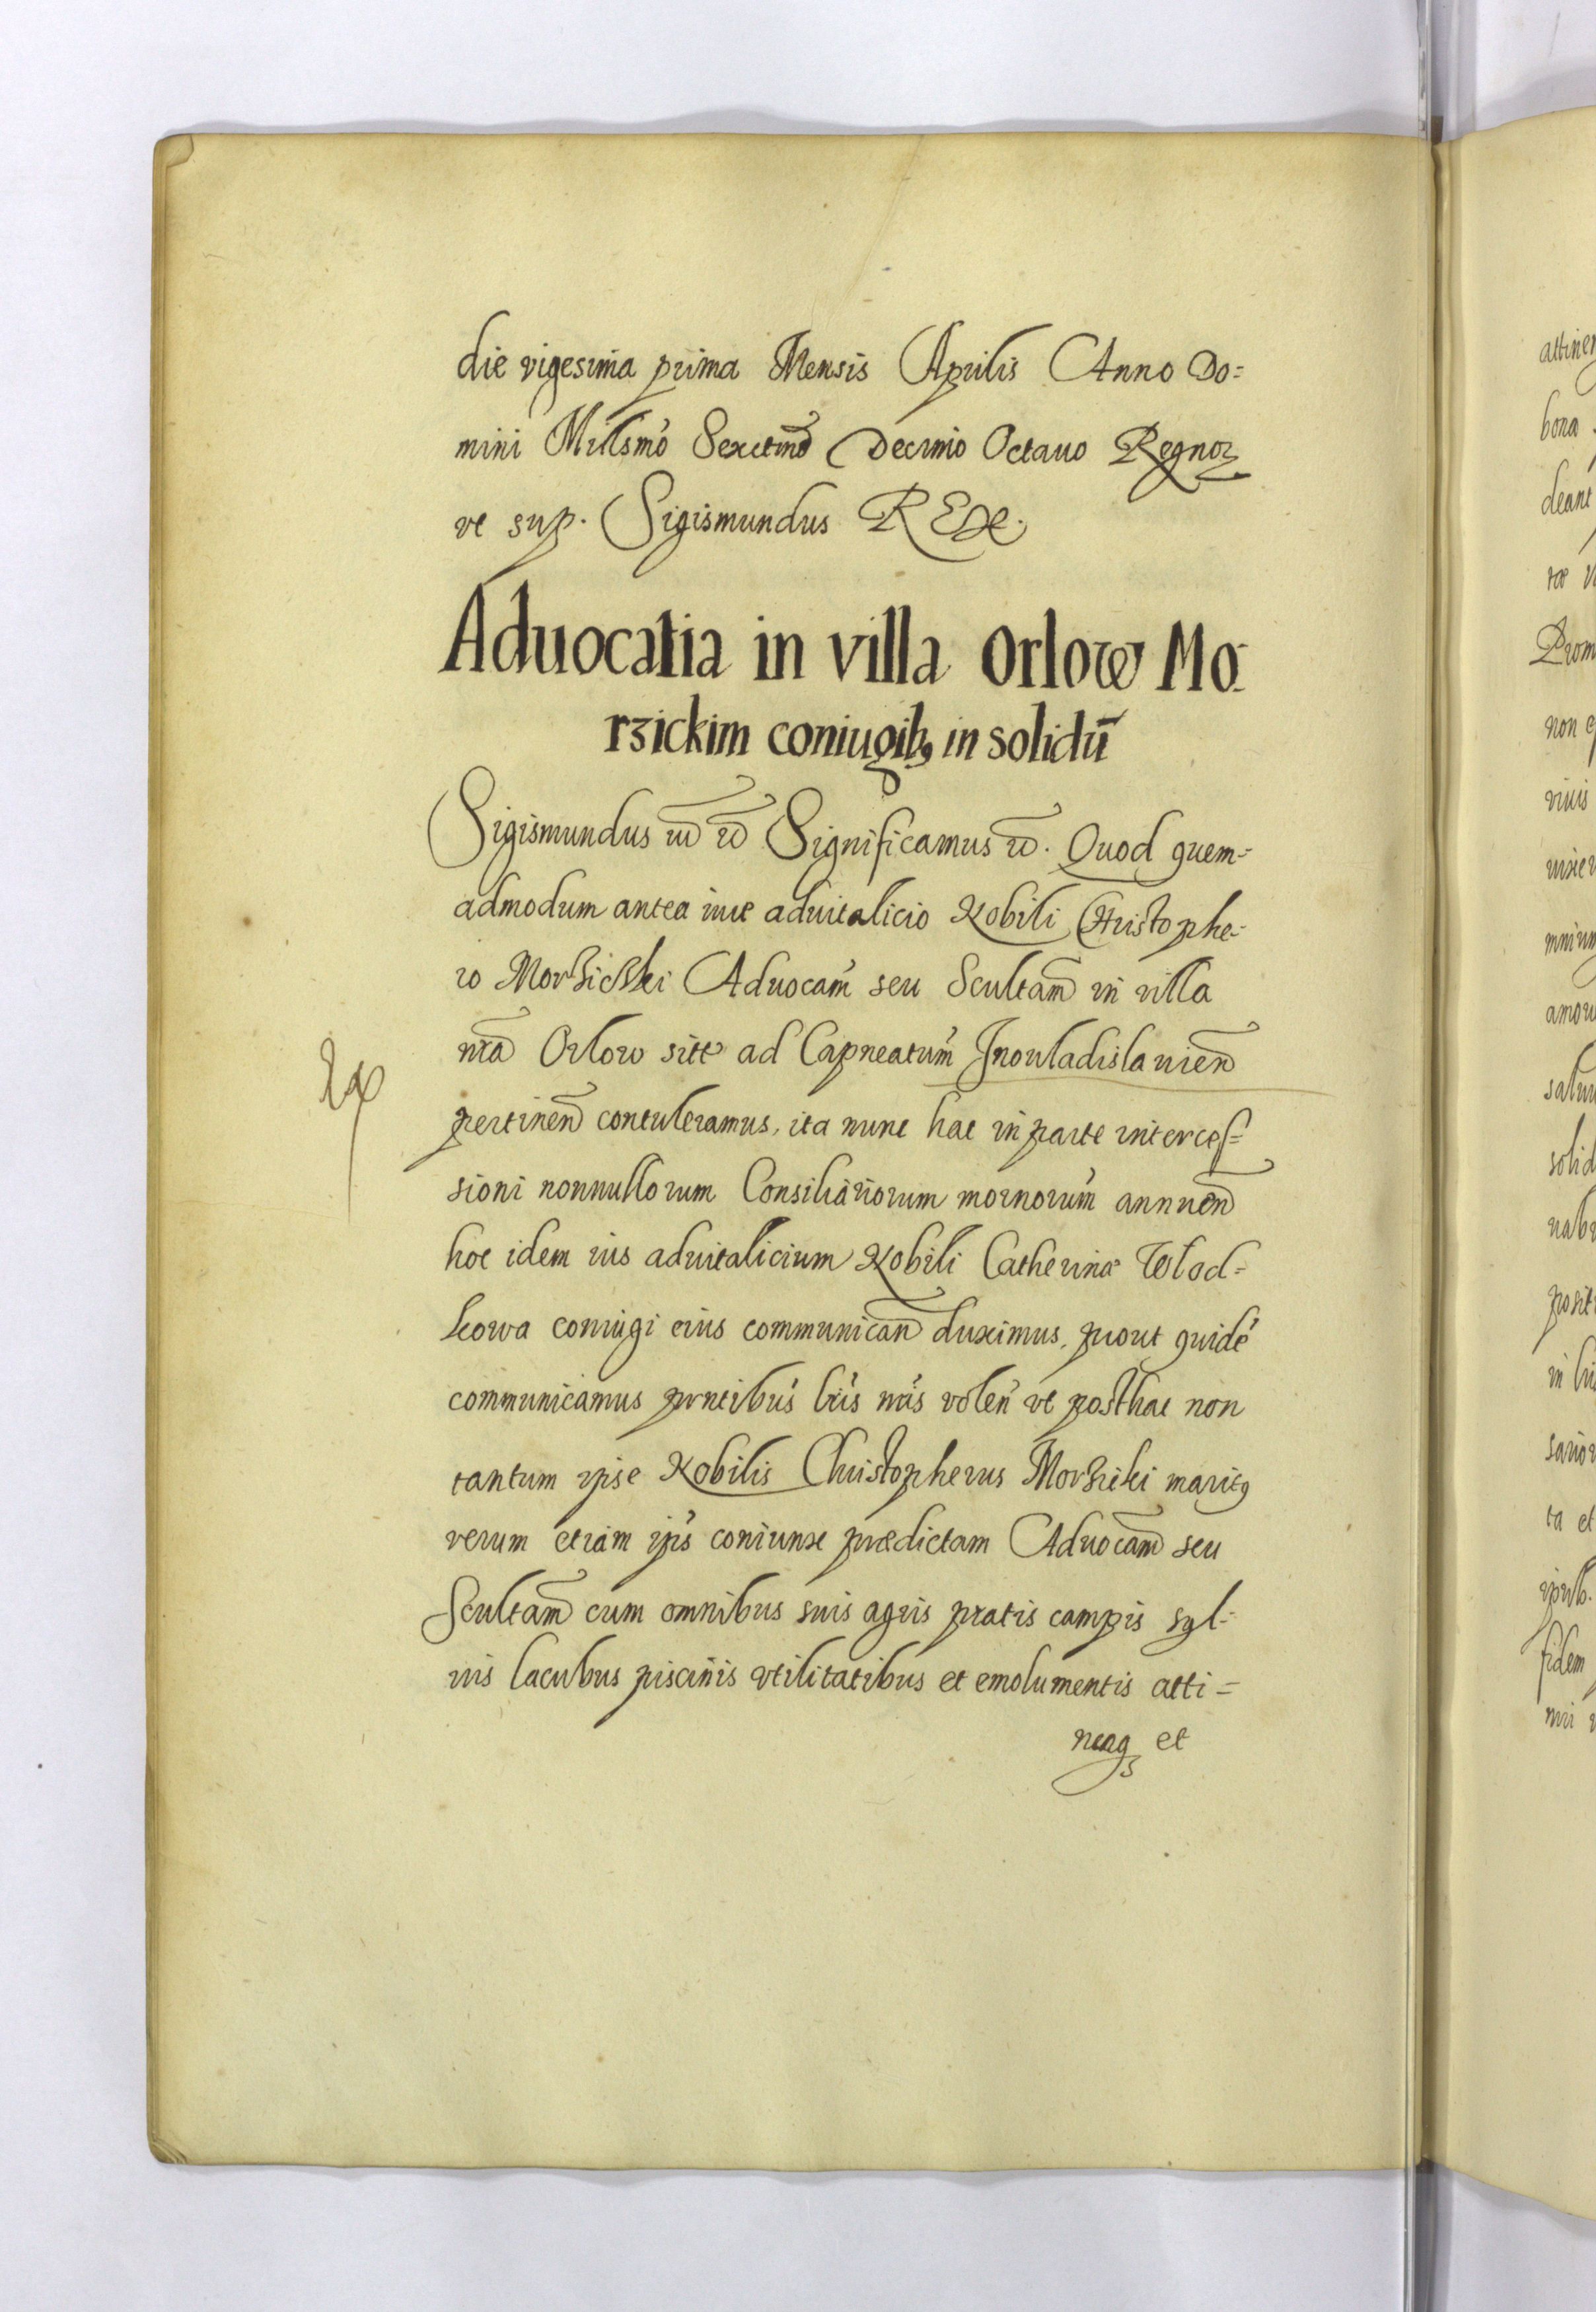 die vigesima prima Mensis Aprilis Anno Do=
mini Millsmo Sexctmo Decimo Octauo Regnoꝝ
vt sup. Sigismundus REX.
Aduocatia in villa Orlow Mo-
rzickim coniugibꝫ in solidū
Sigismundus Significamus Quod quem-
admodum antea iure aduitalicio Nobili Christophe-
ro Morzicki Aduocam seu Scultam in villa
nra Orlow sitt ad Capneatum Inouladislauien
pertinen contuleramus, ita nunc hac in parte interces=
sioni nonnullorum Consiliariorum nrornorum annuen
hoc idem ius aduitalicium Nobili Catherinæ Wlod=
kowa coniugi eius communican duximus, prout quidē
communicamus prntibus lris nris volen vt posthac non
tantum ipse Nobilis Christopherus Morzicki maritꝰ
verum etiam ips coniunx prædictam Aduocam seu
Scultam cum omnibus suis agris pratis campis syl-
uis lacubus piscinis vtilitatibus et emolumentis atti=
neaq et
attinen
bona
deant
tæ
Prom
non
viuis
mnium
amou
solid
posit
in
ta et
fidem